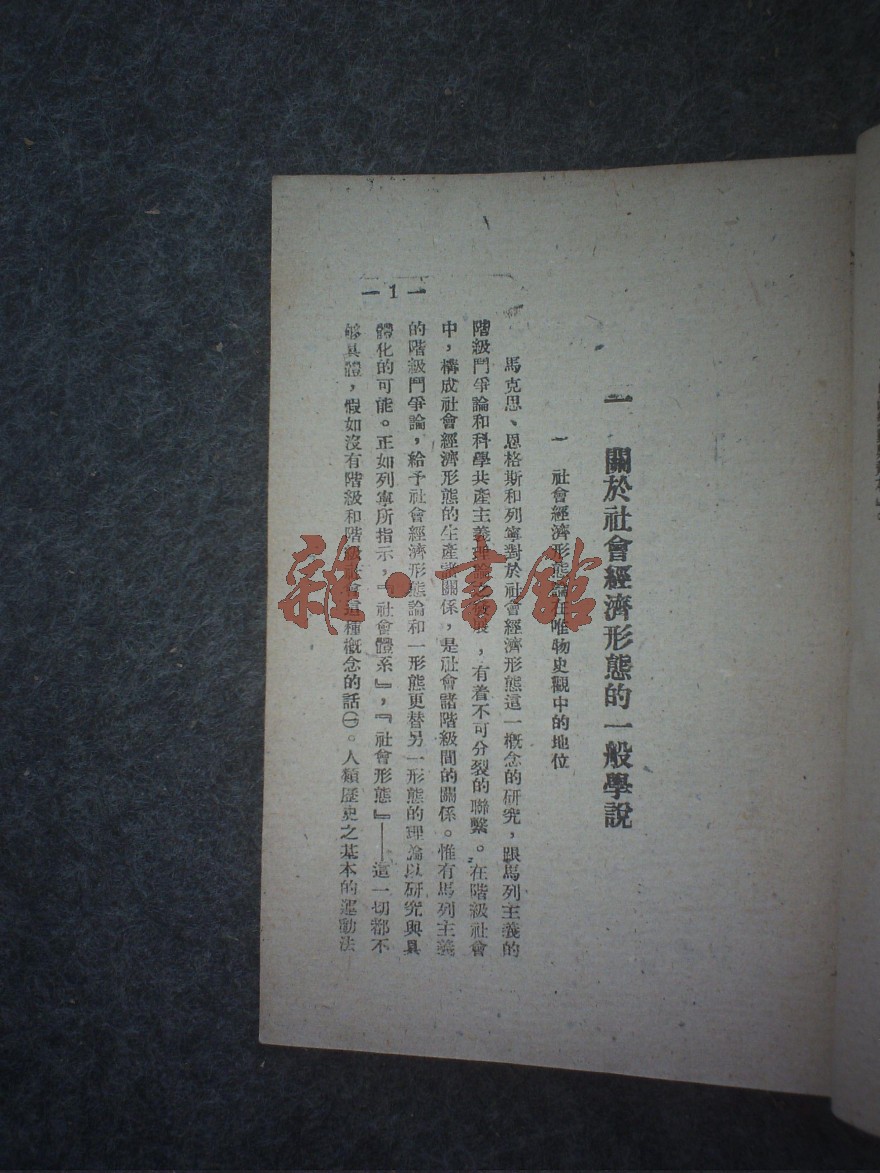 一　關於社會經濟形態的一般學說
一　社會經濟形態論在唯物史觀中的地位
馬克思、恩格斯和列寧對於社會經濟形態這一概念的研究，跟馬列主義的
階級鬥爭論和科學共產主義理論之發展，有着不可分裂的聯繫。在階級社會
中，構成社會經濟形態的生產諸關係，是社會諸階級間的關係。惟有馬列主義
的階級鬥爭論，給予社會經濟形態論和一形態更替另一形態的理論以研究與具
體化的可能。正如列寧所指示，『社會體系』，『社會形態』——這一切都不
够具體，假如沒有階級和階級社會這種概念的話㊀。人類歷史之基本的運動法
— 1 —
雜·書館